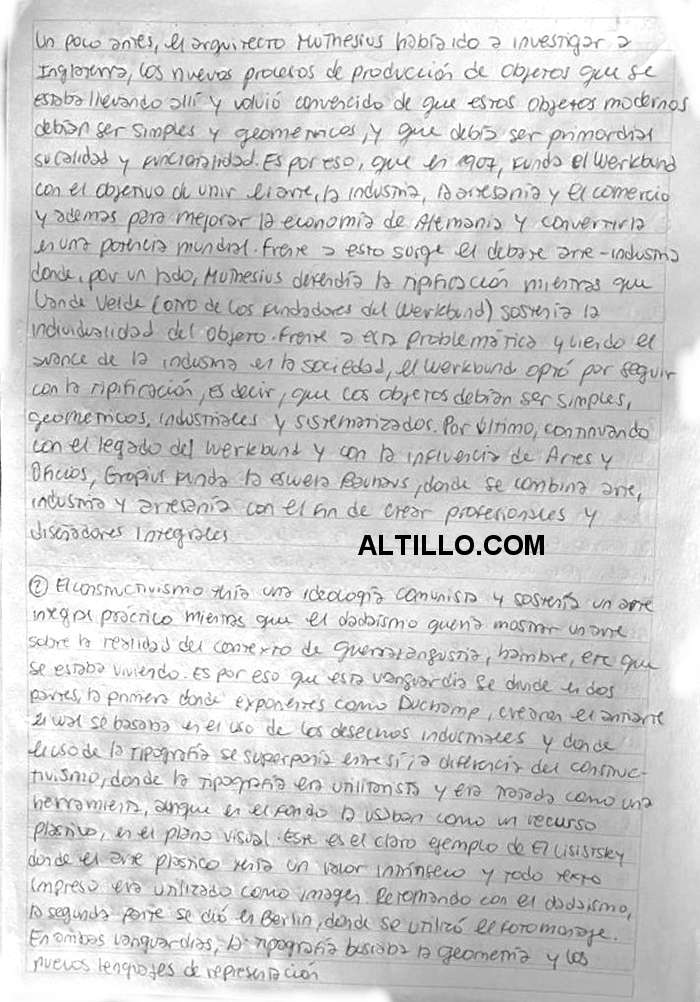 Un poco antes, el arquitecto Muthesius había ido a investigar a
Inglaterra, los nuevos procesos de producción de objetos que se
estaba llevando allí y volvió convencido de que estos objetos modernos
debían ser simples y geometricos, y que debía ser primordial
su calidad y funcionalidad. Es por eso, que en 1907, funda el Werkbund
con el objetivo de unir el arte, la industria, la artesanía y el comercio
y ademas para mejorar la economía de Alemania y convertirla
en una potencia mundial. Frente a esto surge el debate arte-industria
donde, por un lado, Muthesius defendía la tipificación mientras que
Vande Velde (otro de los fundadores del Werkbund) sostenía la
individualidad del objeto. Frente a esta problemática y viendo el
avance de la industria en la sociedad, el Werkbund optó por seguir
con la tipificación, es decir, que los objetos debían ser simples,
geometricos, industriales y sistematizados. Por último, continuando
con el legado del Werkbund y con la influencia de Artes y
Oficios, Gropius funda la escuela Bauhaus, donde se combina arte,
industria y artesanía con el fin de crear profesionales y
diseñadores integrales
ALTILLO.COM
② El constructivismo tenía una ideología comunista y sostenía un arte
integral práctico mientras que el dadaísmo quería mostrar un arte
sobre la realidad del contexto de guerra, angustia, hambre, etc que
se estaba viviendo. Es por eso que esta vanguardia se divide en dos
partes, la primera donde exponentes como Duchamp, crearon el antiarte
el cual se basaba en el uso de los desechos industriales y donde
el uso de la tipografía se superponía entre sí, a diferencia del construc-
tivismo, donde la tipografía era utilitarista y era tratada como una
herramienta, aunque en el fondo la usaban como un recurso
plástico, en el plano visual. Este es el claro ejemplo de El Lisistsky
donde el arte plastico tenía un valor intrínseco y todo texto
impreso era utilizado como imagen. Retomando con el dadaísmo,
la segunda parte se dió en Berlin, donde se utilizó el fotomontaje.
En ambas vanguardias, la tipografía buscaba la geometría y los
nuevos lenguajes de representación